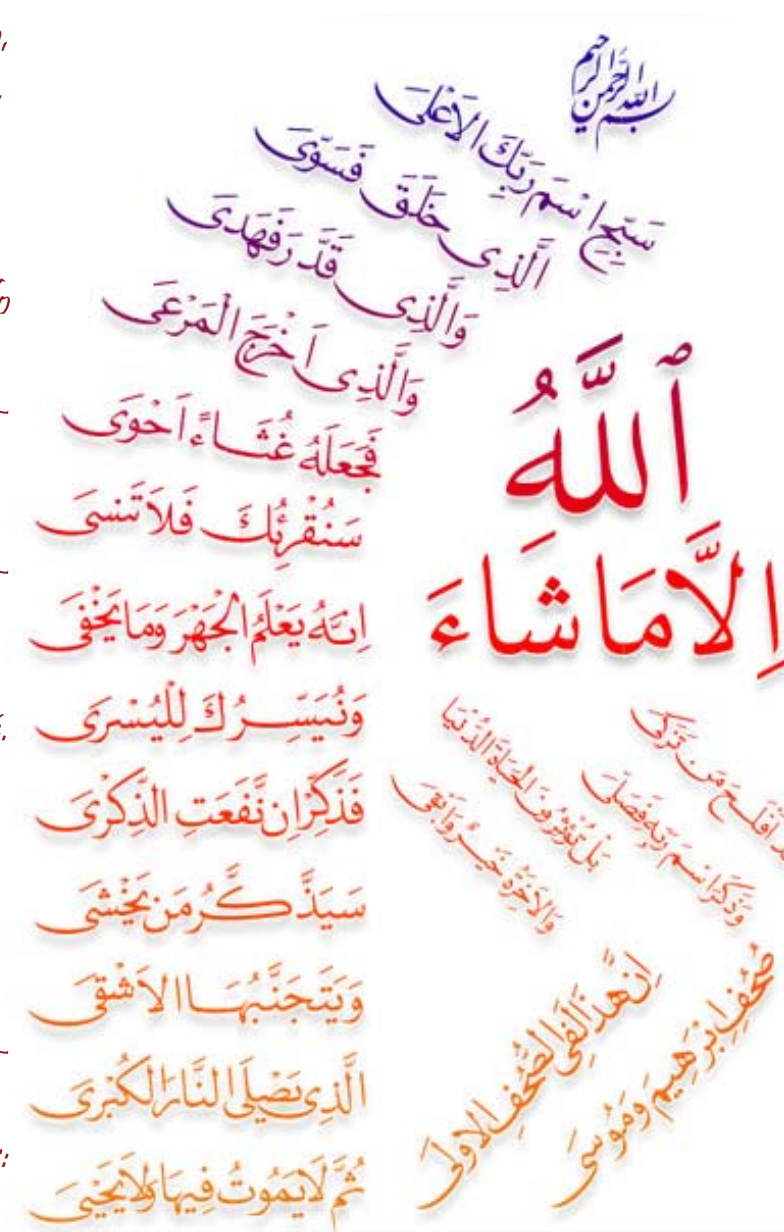 بسم الله الرحمن الرحيم
سَبِّحِ اسْمَ رَبِّكَ الاَعْلَى
الَّذِى خَلَقَ فَسَوَّى
وَالَّذِى قَدَّرَ فَهَدَى
وَالَّذِى اَخْرَجَ الْمَرْعَى
فَجَعَلَهُ غُثَاءً اَحْوَى
سَنُقْرِئُكَ فَلاَ تَنسَى
اِلَّا مَا شَاءَ
ٱللَّهُ
اِنَّهُ يَعْلَمُ الْجَهْرَ وَمَا يَخْفَى
وَنُيَسِّرُكَ لِلْيُسْرَى
فَذَكِّرْ اِن نَّفَعَتِ الذِّكْرَى
سَيَذَّكَّرُ مَن يَخْشَى
وَيَتَجَنَّبُهَا الاَشْقَى
الَّذِى يَصْلَى النَّارَ الْكُبْرَى
ثُمَّ لَا يَمُوتُ فِيهَا وَلَا يَحْيَى
اَفْلَحَ مَن تَزَكَّى
وَذَكَرَ اسْمَ رَبِّهِ فَصَلَّى
بَلْ تُؤْثِرُونَ الْحَيَاةَ الدُّنْيَا
وَالاَخِرَةُ خَيْرٌ وَاَبْقَى
اِنَّ هَذَا لَفِى الصُّحُفِ الاُولَى
صُحُفِ اِبْرَهِيمَ وَمُوسَى